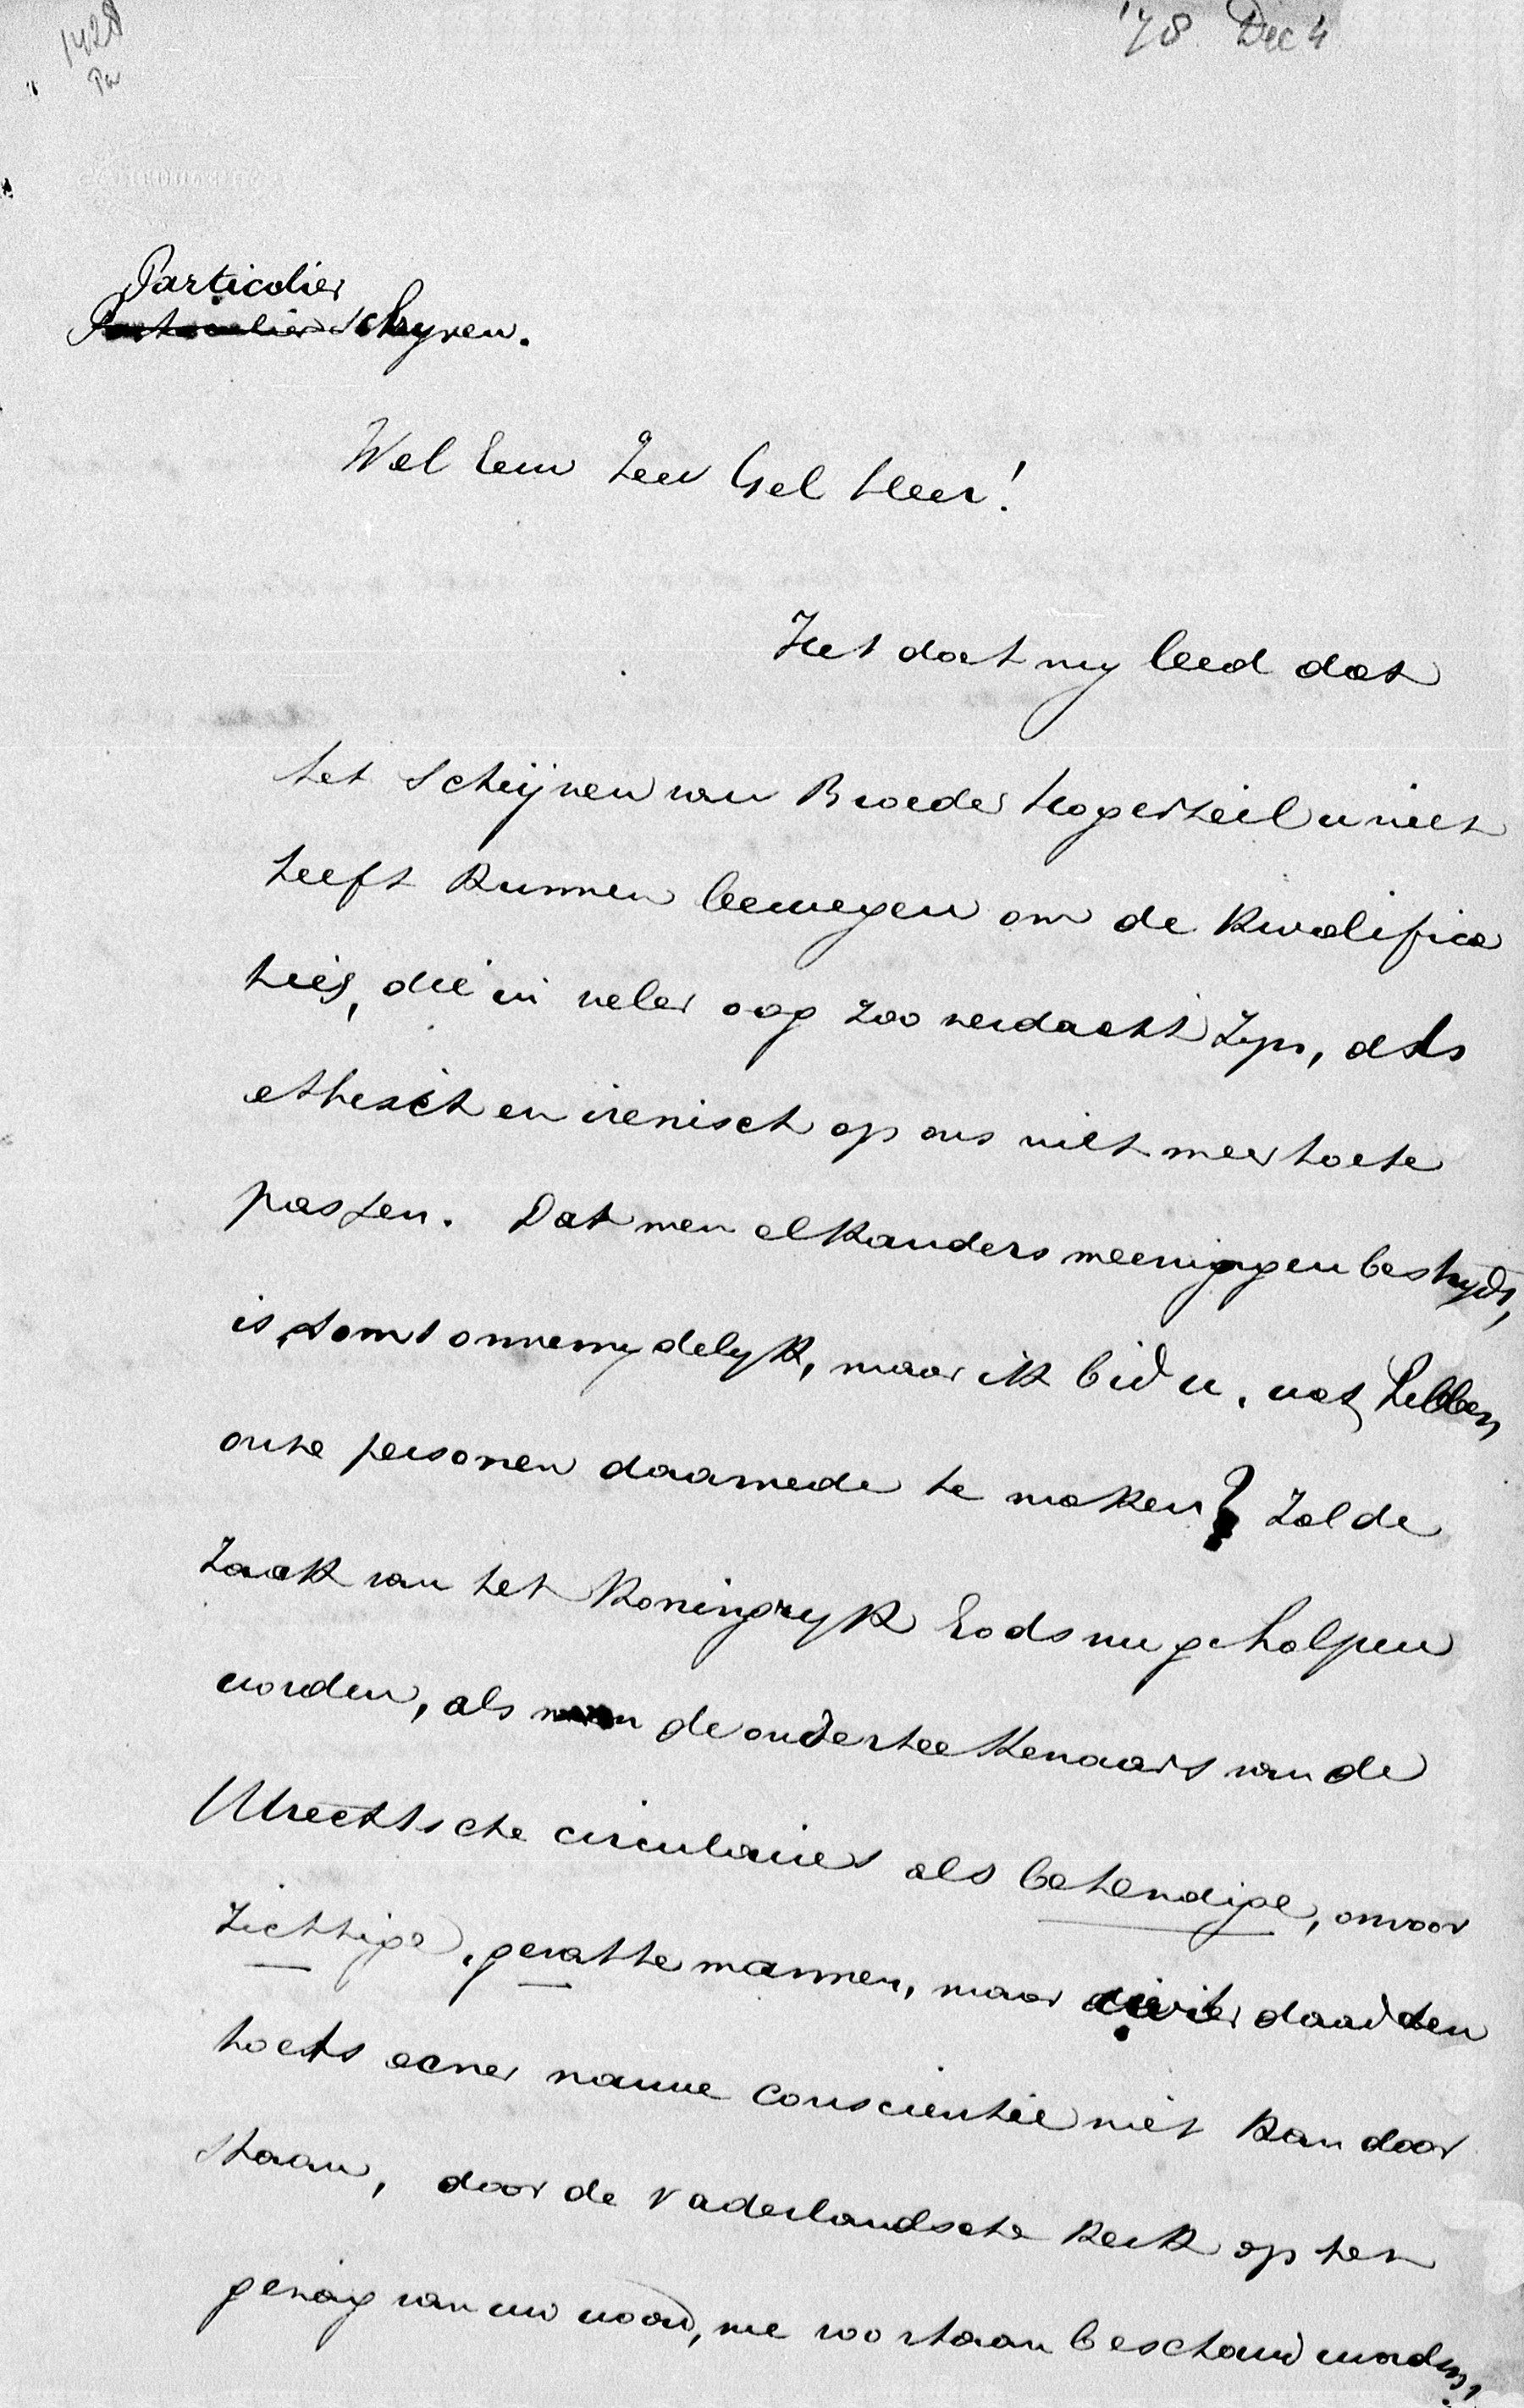 1428
Pa
'78 Dec 4
Particulier
Particulier schryven.
Wel Eerw Zeer Gel Heer!
Het doet my leed dat
het schrijven van Broeder Hogerzeil u niet
heeft kunnen bewegen om de kwalifica
ties, die in veler oog zoo verdacht zyn, als
ethisch en irenisch op ons niet meer toe te
passen. Dat men elkanders meeningen bestrydt,
is soms onvermydelyk, maar ik bid u, wat hebben
onze personen daarmede te maken? Zal de
zaak van het Koningryk Gods nu geholpen
worden, als de onderteekenaars van de
Utrechtsche circulaires als behendige, onvoor
zichtige, gevatte mannen, maar wier daad den
toets eener nauwe conscientie niet kan door
staan, door de vaderlandsche kerk op het
gezag van uw woord, nu voortaan beschouwd worden?